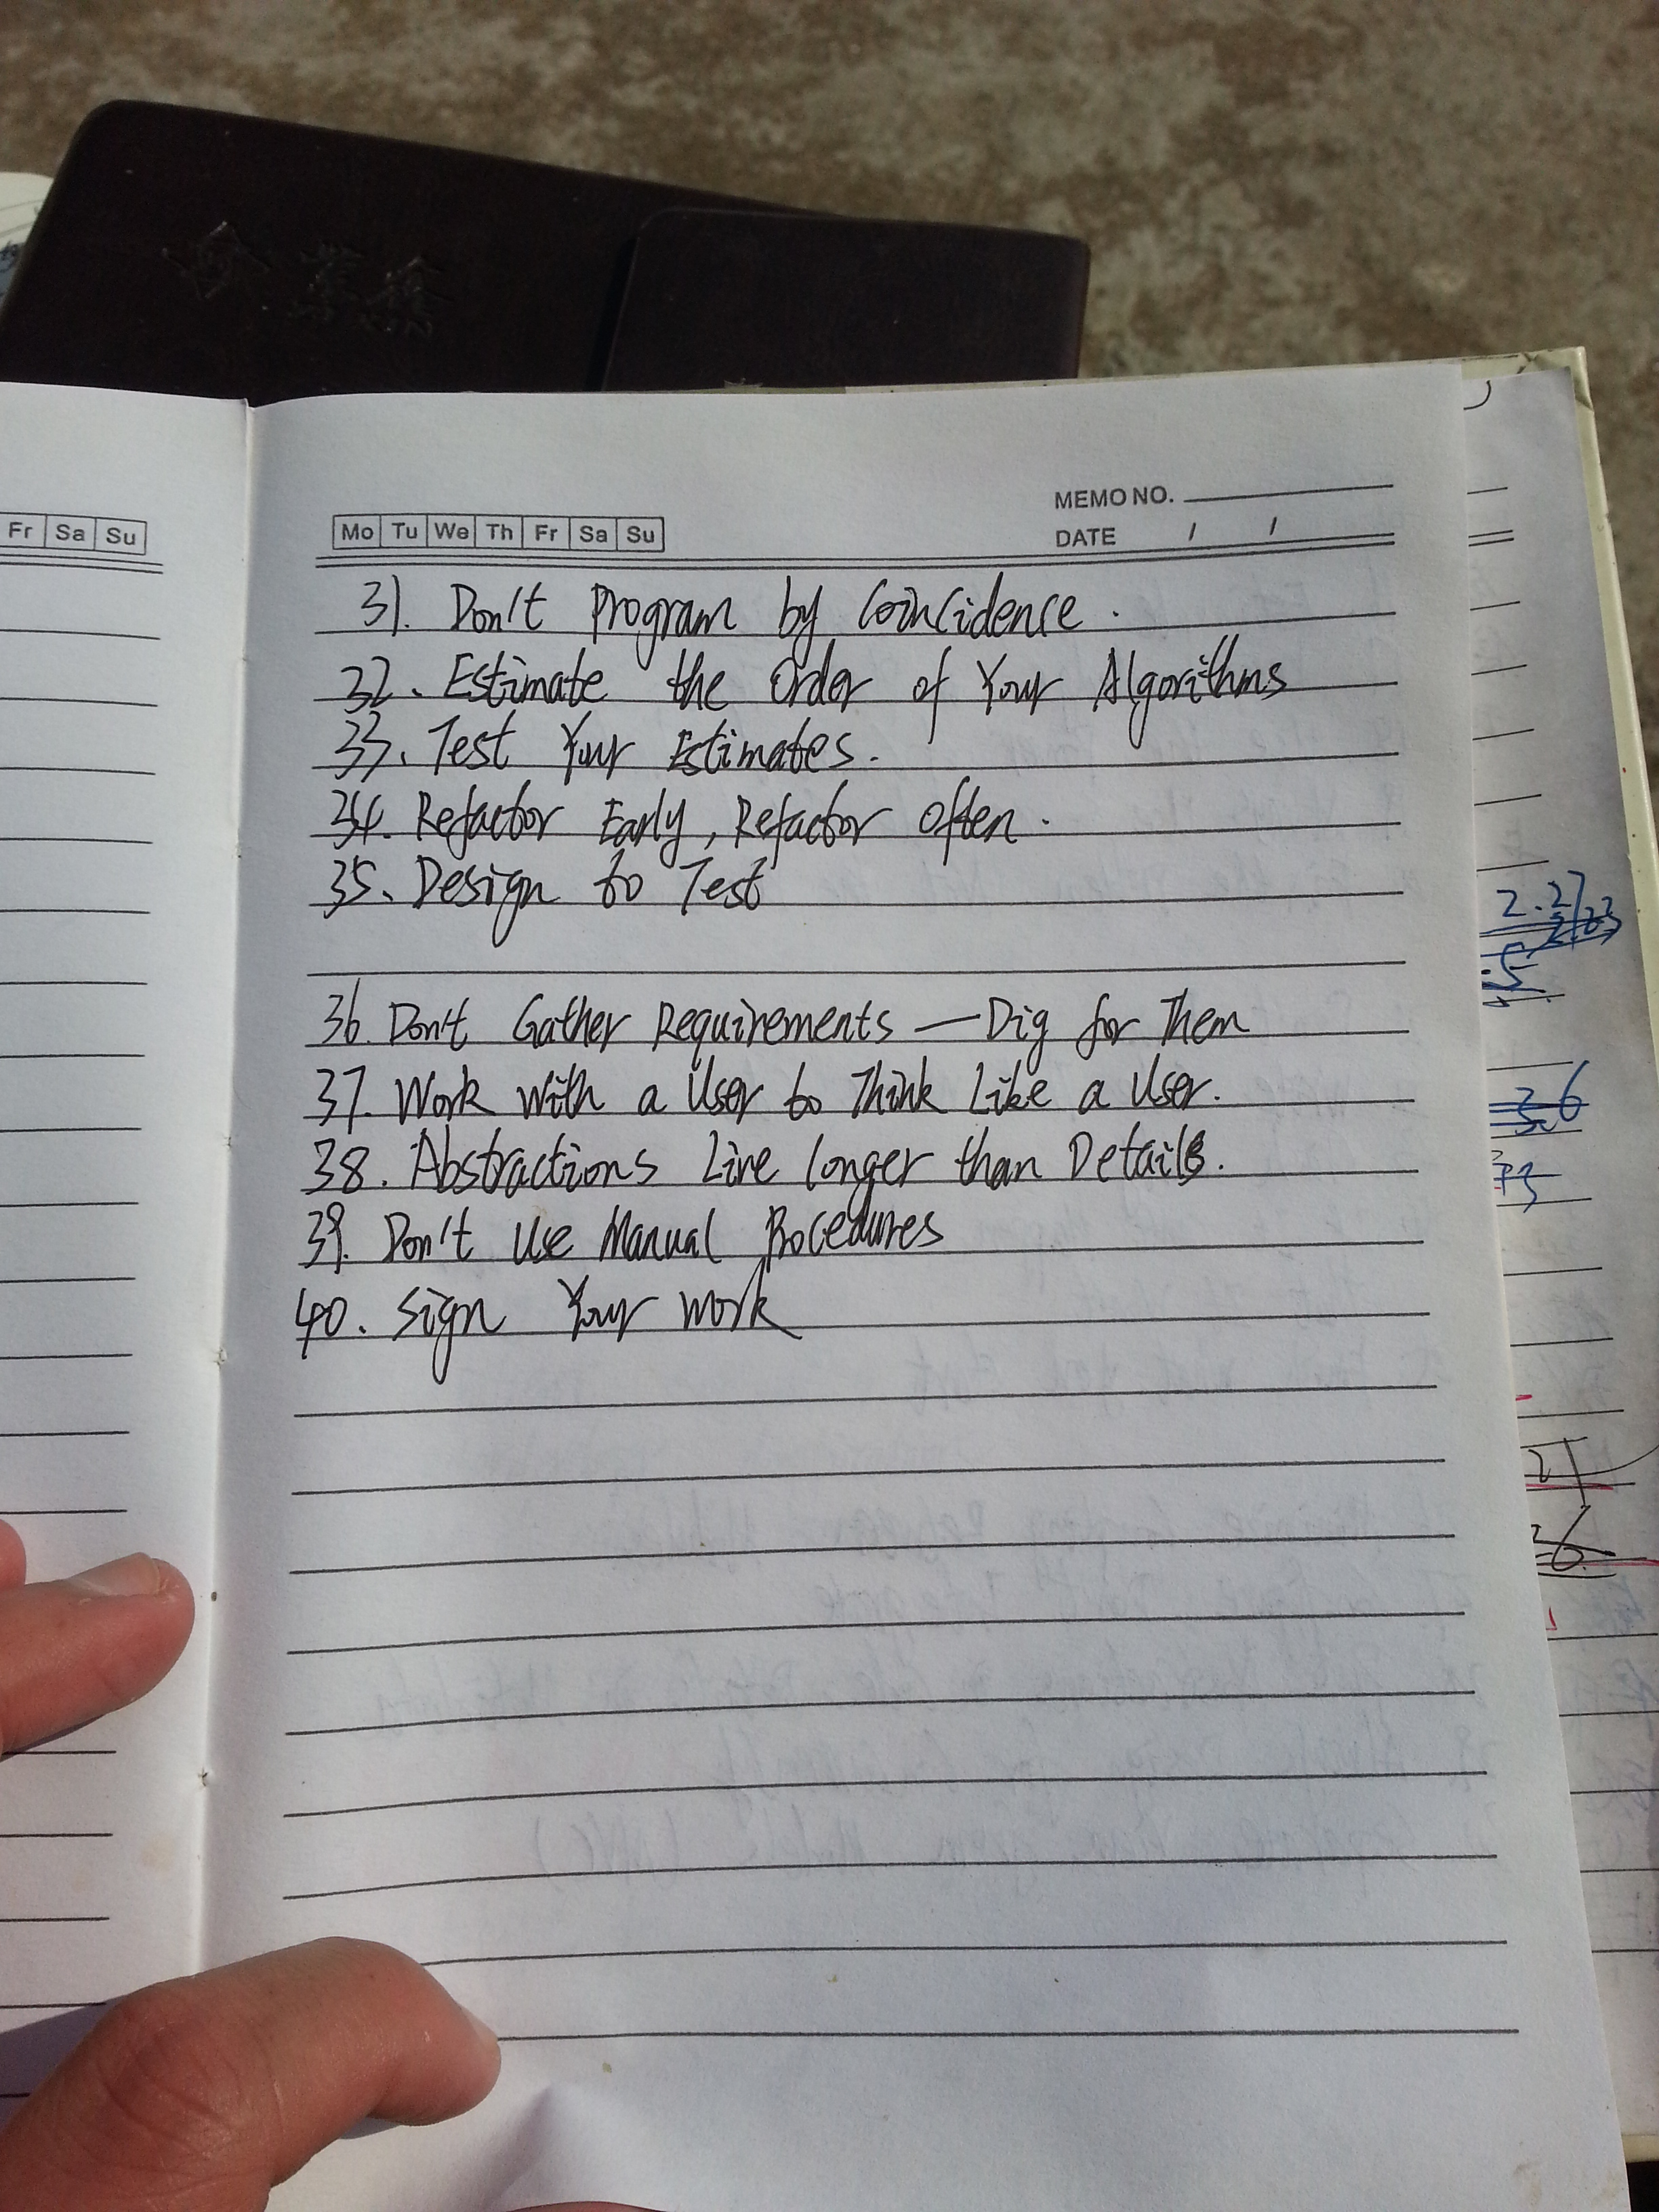 Fr Sa Su
Mo Tu We Th Fr Sa Su
MEMO NO.
DATE / /
31. Don't Program by Coincidence.
32. Estimate the Order of Your Algorithms
33. Test Your Estimates.
34. Refactor Early, Refactor Often.
35. Design to Test
36. Don't Gather Requirements — Dig for Them
37. Work with a User to Think Like a User.
38. Abstractions Live Longer than Details.
39. Don't Use Manual Procedures
40. Sign Your Work